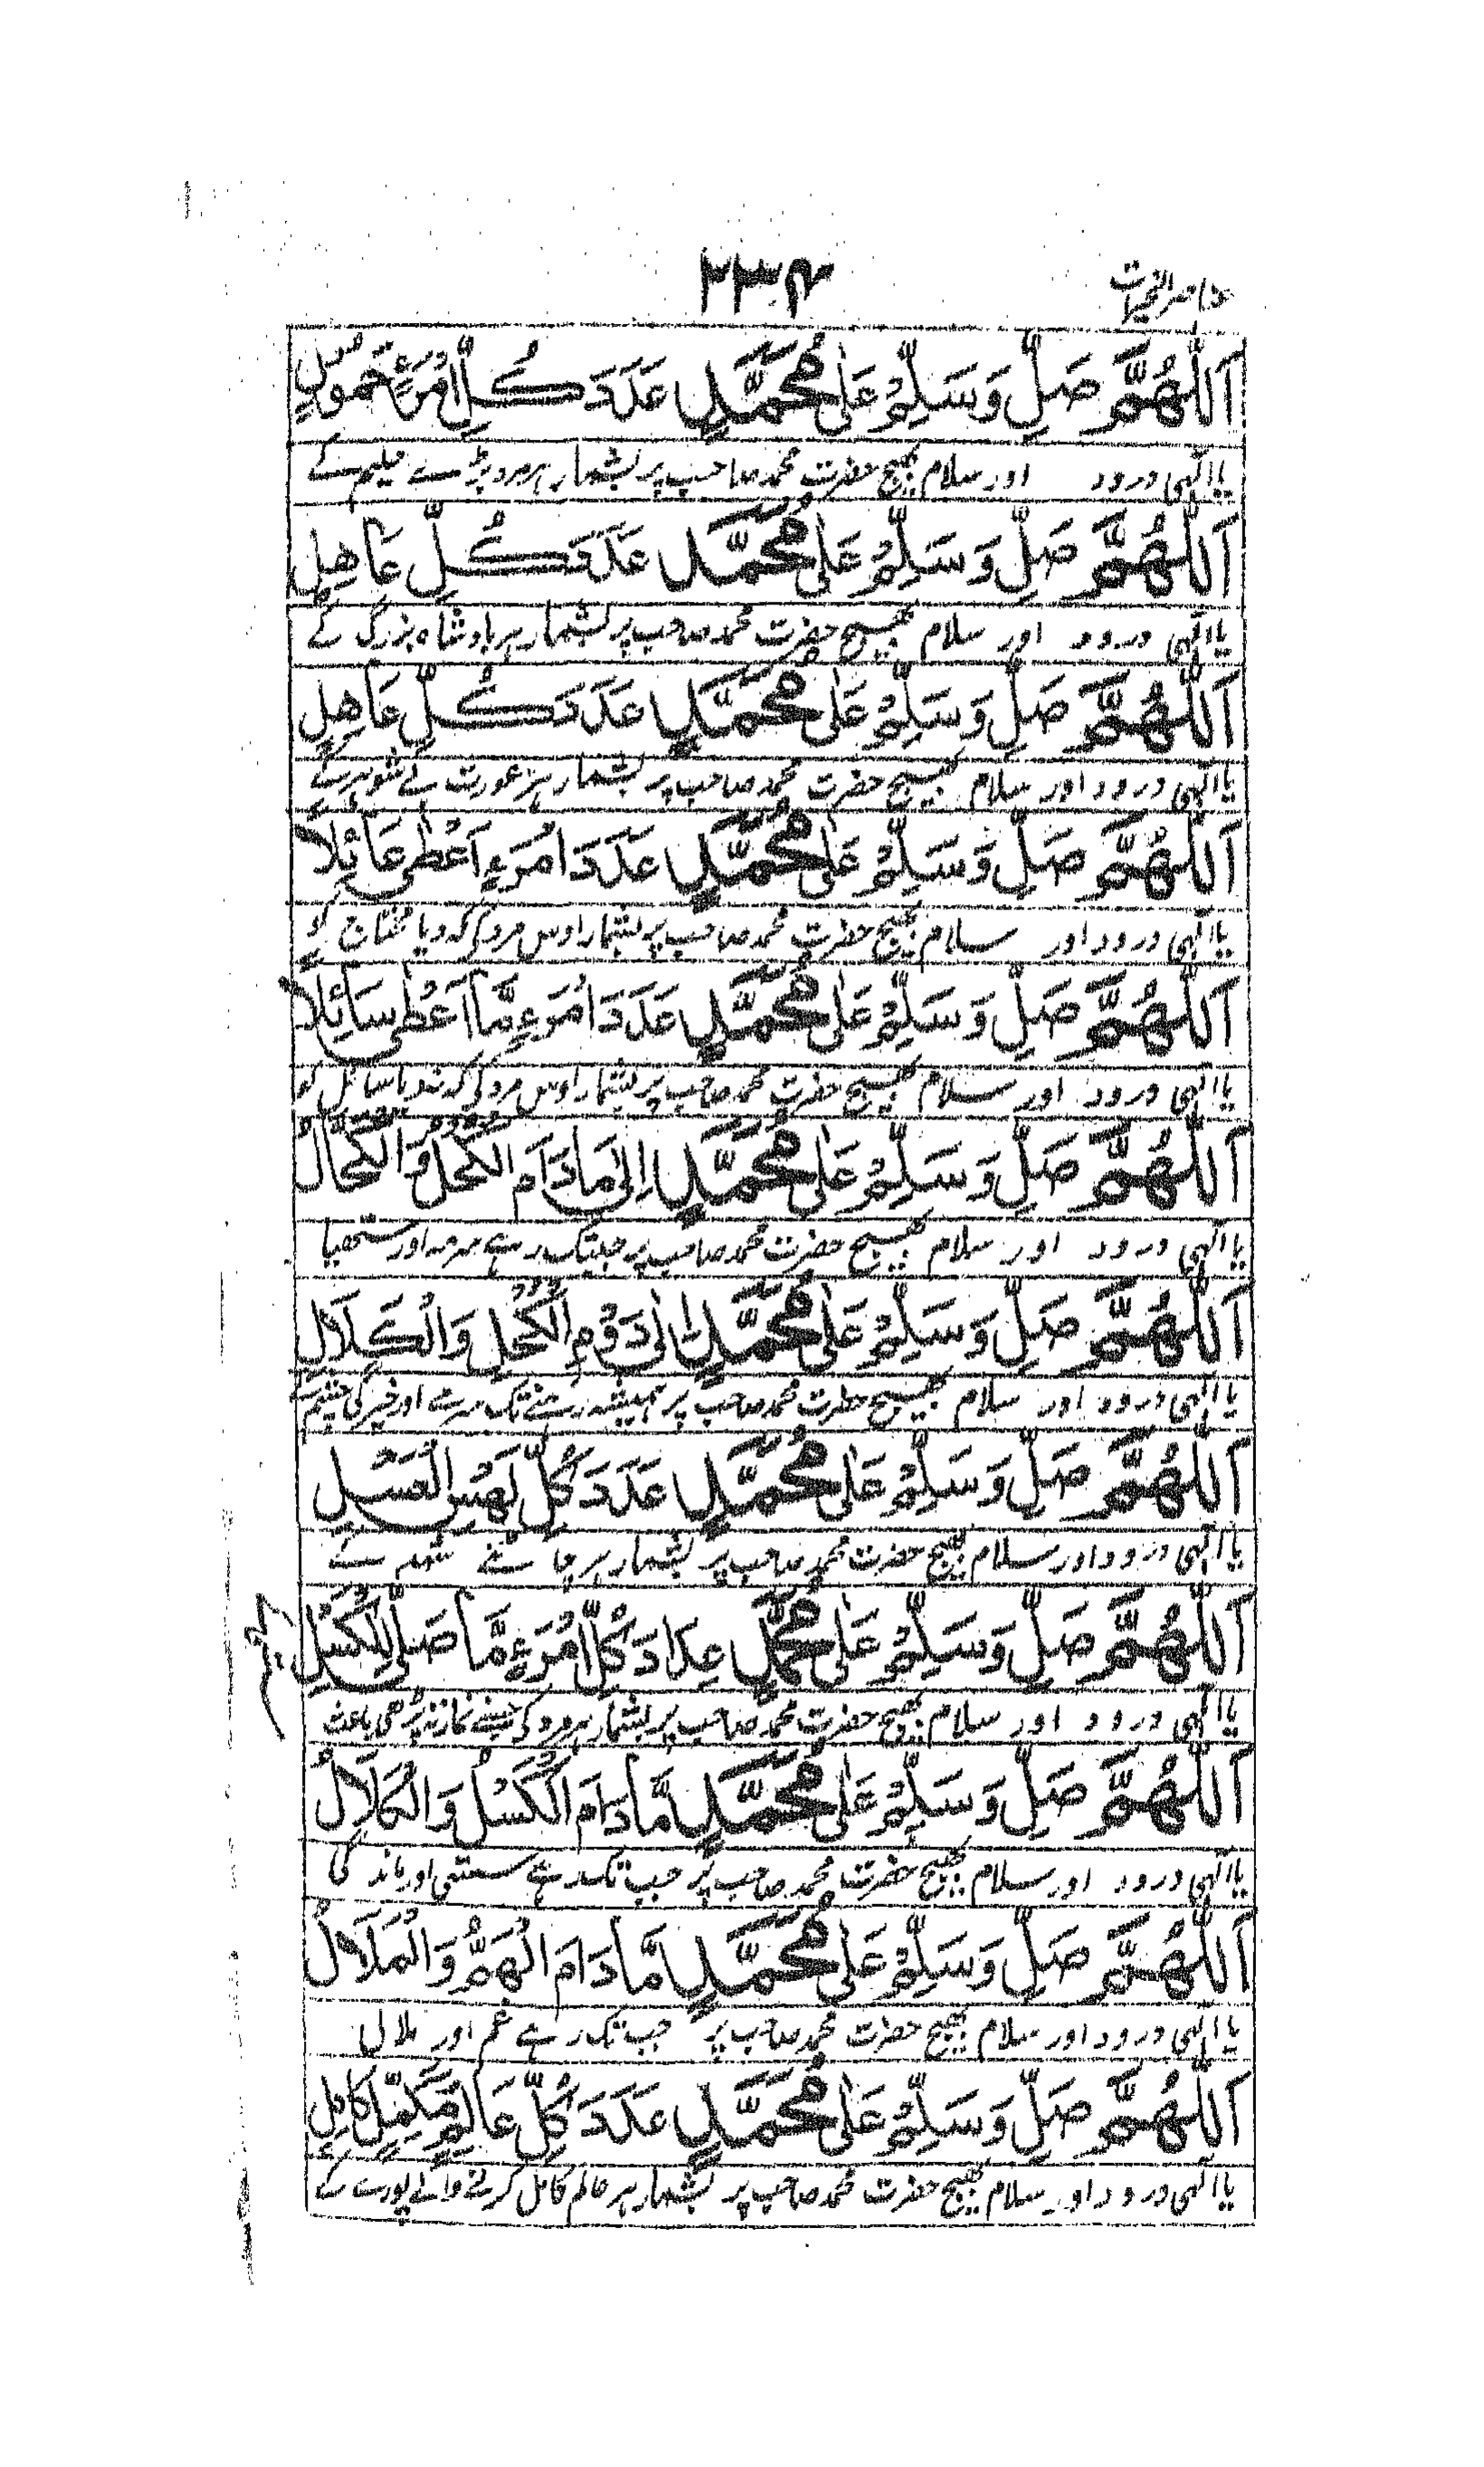 ۲۳۴
عناصر التحیات
اَللّٰهُمَّ صَلِّ وَسَلِّمْ عَلٰى مُحَمَّدٍ عَدَدَ كُلِّ امْرَءٍ حَمُوْلٍ
یا الٰہی درود اور سلام بھیج حضرت محمد صاحب پر بشمار ہر مرد بڑے حلیم کے
اَللّٰهُمَّ صَلِّ وَسَلِّمْ عَلٰى مُحَمَّدٍ عَدَدَ كُلِّ عَاهِلٍ
یا الٰہی درود اور سلام بھیج حضرت محمد صاحب پر بشمار ہر بادشاہ بزرگ کے
اَللّٰهُمَّ صَلِّ وَسَلِّمْ عَلٰى مُحَمَّدٍ عَدَدَ كُلِّ عَاهِلٍ
یا الٰہی درود اور سلام بھیج حضرت محمد صاحب پر بشمار ہر عورت بے شوہر کے
اَللّٰهُمَّ صَلِّ وَسَلِّمْ عَلٰى مُحَمَّدٍ عَدَدَ امْرَءٍ اَعْطٰى عَائِلًا
یا الٰہی درود اور سلام بھیج حضرت محمد صاحب پر بشمار اوس مرد کی کہ دیا محتاج کو
اَللّٰهُمَّ صَلِّ وَسَلِّمْ عَلٰى مُحَمَّدٍ عَدَدَ امْرَءٍ مَّا اَعْطٰى سَائِلًا
یا الٰہی درود اور سلام بھیج حضرت محمد صاحب پر بشمار اوس مرد کی کہ ندیا سائل کو
اَللّٰهُمَّ صَلِّ وَسَلِّمْ عَلٰى مُحَمَّدٍ اِلٰى مَا دَامَ الْكُحْلُ وَالْكُحَّالُ
یا الٰہی درود اور سلام بھیج حضرت محمد صاحب پر جبتک رہے سرمہ اور
اَللّٰهُمَّ صَلِّ وَسَلِّمْ عَلٰى مُحَمَّدٍ اِلٰى دَوْمِ الْكُحْلِ وَالْكَلَالِ
یا الٰہی درود اور سلام بھیج حضرت محمد صاحب پر ہمیشہ رہنے تک سرمے اور خیرگی چشم کے
اَللّٰهُمَّ صَلِّ وَسَلِّمْ عَلٰى مُحَمَّدٍ عَدَدَ كُلِّ لَهْسِ الْعَسَلِ
یا الٰہی درود اور سلام بھیج حضرت محمد صاحب پر بشمار ہر چاٹنے شہد کے
اَللّٰهُمَّ صَلِّ وَسَلِّمْ عَلٰى مُحَمَّدٍ عِدَادَ كُلِّ امْرَءٍ مَّا صَلّٰى لِلْكَسَلِ
یا الٰہی درود اور سلام بھیج حضرت محمد صاحب پر بشمار ہر مرد کی جسنے نماز نہ پڑھی باعث
اَللّٰهُمَّ صَلِّ وَسَلِّمْ عَلٰى مُحَمَّدٍ مَّا دَامَ الْكَسَلُ وَالْكَلَالُ
یا الٰہی درود اور سلام بھیج حضرت محمد صاحب پر جب تک رہے سستی اور ماندگی
اَللّٰهُمَّ صَلِّ وَسَلِّمْ عَلٰى مُحَمَّدٍ مَّا دَامَ الْهَمُّ وَالْمَلَالُ
یا الٰہی درود اور سلام بھیج حضرت محمد صاحب پر جب تک رہے غم اور ملال
اَللّٰهُمَّ صَلِّ وَسَلِّمْ عَلٰى مُحَمَّدٍ عَدَدَ كُلِّ عَالِمٍ مُكَمِّلٍ كَامِلٍ
یا الٰہی درود اور سلام بھیج حضرت محمد صاحب پر بشمار ہر عالم کامل کرنے والے پورے کے